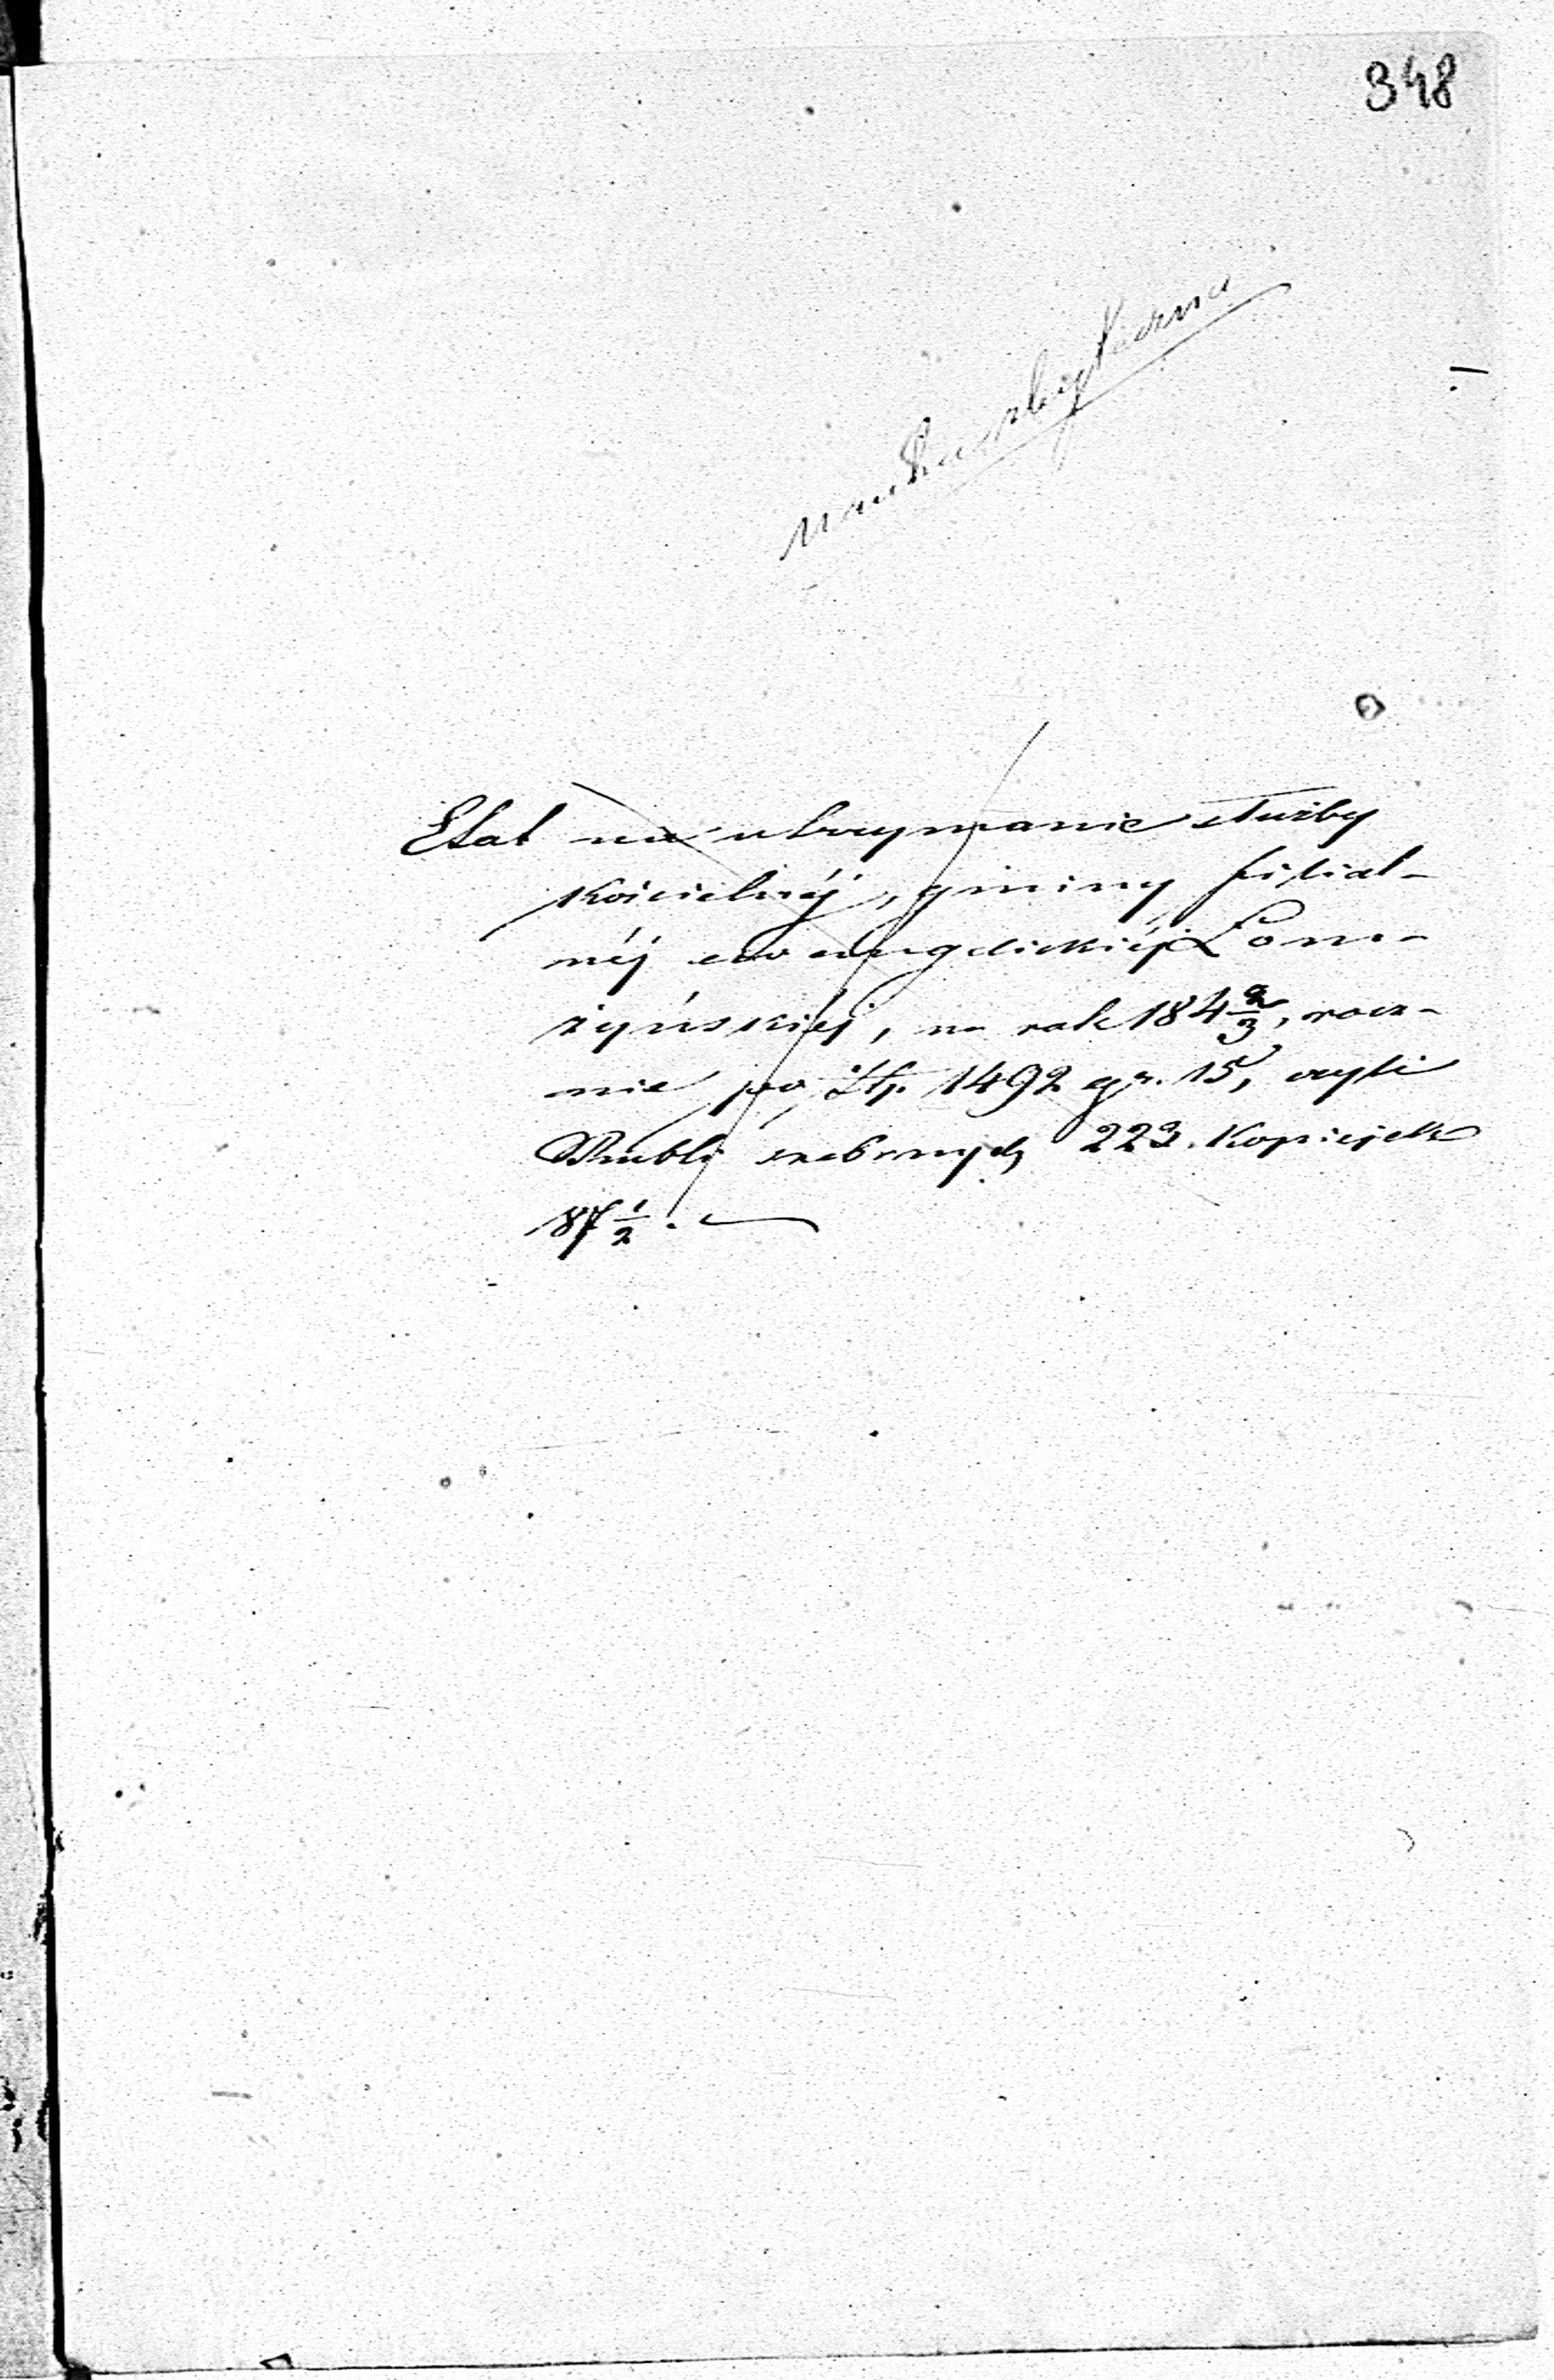 348
nauka zbyteczna
Etat na utrzymanie służby
Kościelnéj, gminy filial-
néj ewangelickiéj Łom-
żyńskiéj, na rok 184 2/3, rocz-
nie po Złp. 1492 gr. 15, czyli
Rubli srebrnych 223. Kopiejek
87 1/2. —